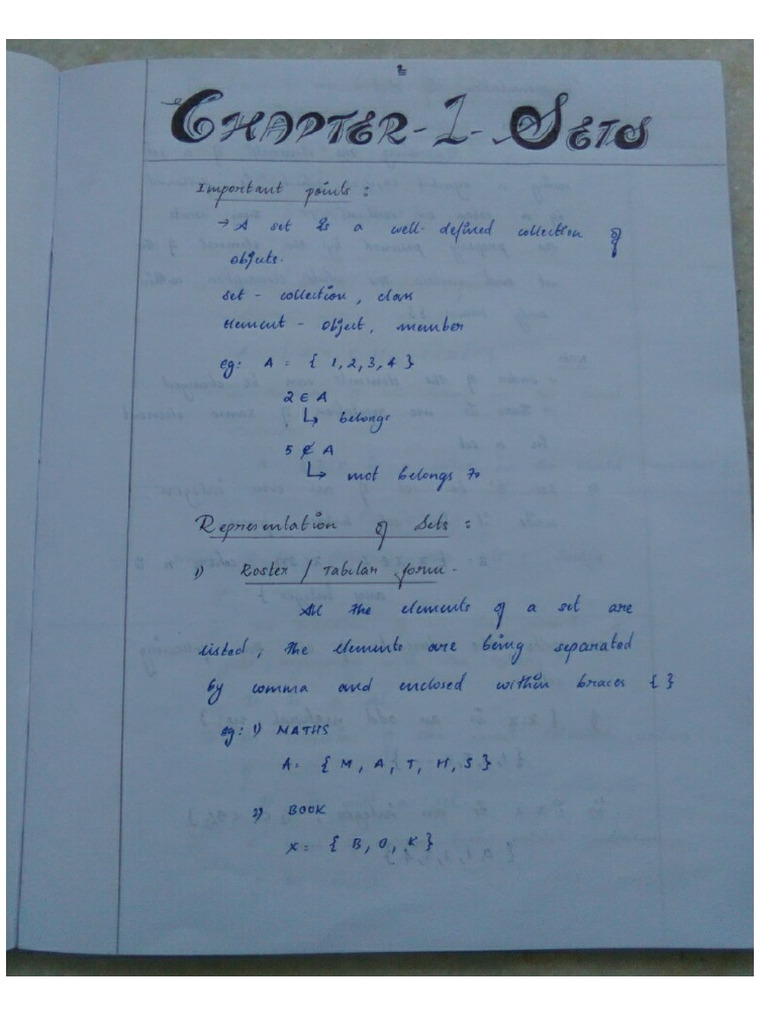 2
CHAPTER-1-SETS
Important points :
→ A set is a well-defined collection of
objects.
set - collection, class
element - object, member
eg: A = { 1, 2, 3, 4 }
2 ∈ A
↳ belongs
5 ∉ A
↳ not belongs to
Representation of Sets :
1) Roster / Tabular form -
All the elements of a set are
listed, the elements are being separated
by comma and enclosed within braces { }
eg: 1) MATHS
A= { M, A, T, H, S }
2) BOOK
X= { B, O, K }